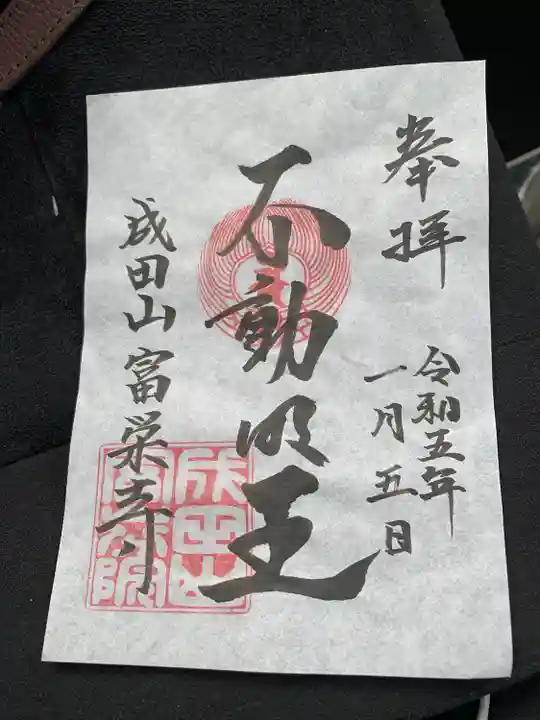 奉拝
令和五年
一月五日
不動明王
成田山富栄寺
成田山